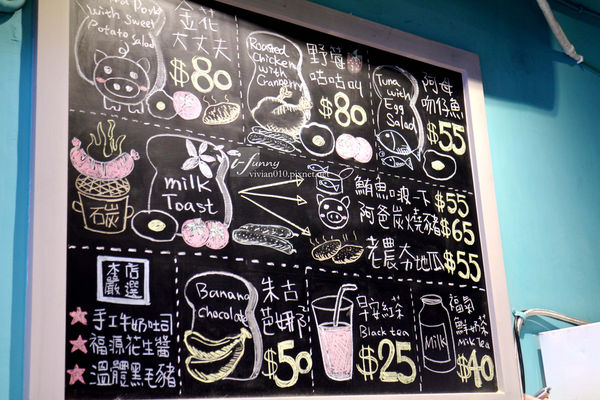 Pork
with Sweet
Potato Salad
金花
大丈夫
$80
Roasted
Chicken
with
Cranberry
野莓
咕咕叫
$80
Tuna
with
Egg
Salad
阿母
吻仔魚
$55
石炭
milk
Toast
i-Funny
vivian010.pixnet.net
鮪魚啵一下 $55
阿爸炭燒豬 $65
老農夯地瓜 $55
本店
嚴選
手工牛奶吐司
福源花生醬
溫體黑毛豬
Banana
chocolate
朱古
芭娜
$50
早安紅茶
Black tea
$25
MILK
福氣
鮮奶茶
Milk Tea
$40